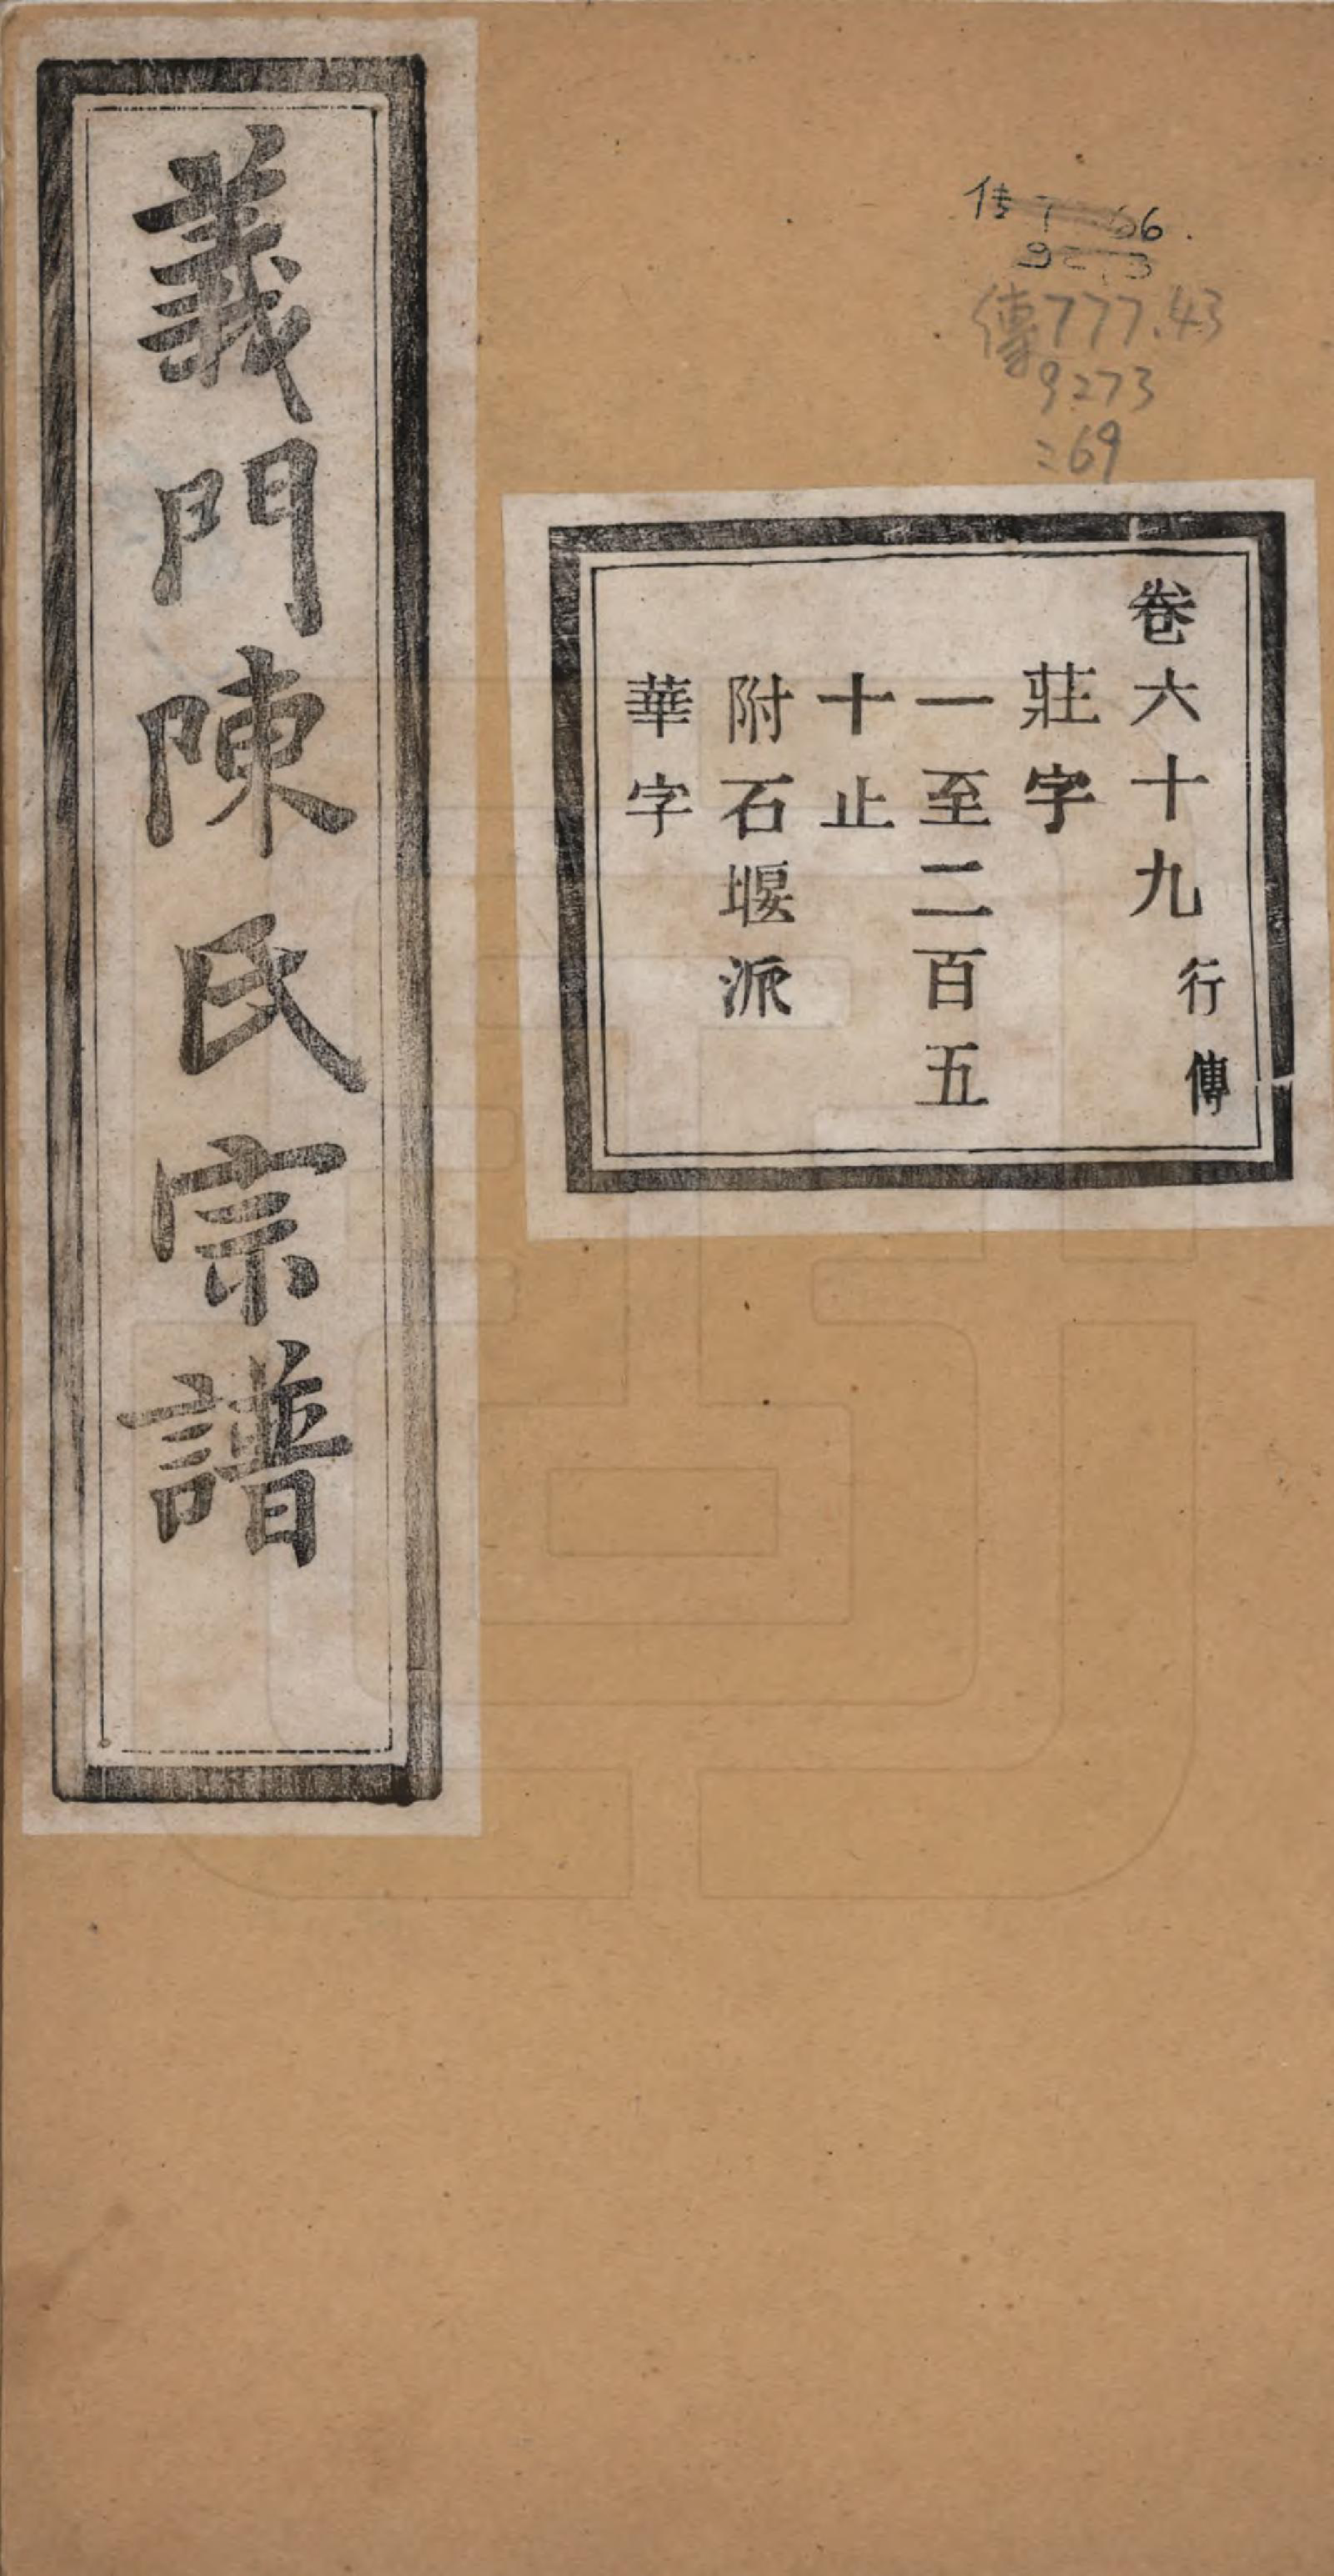 傳777.43
9273
:69
卷六十九行傳
莊字
一至二百五
十止
附石堰派
華字
義門陳氏宗譜